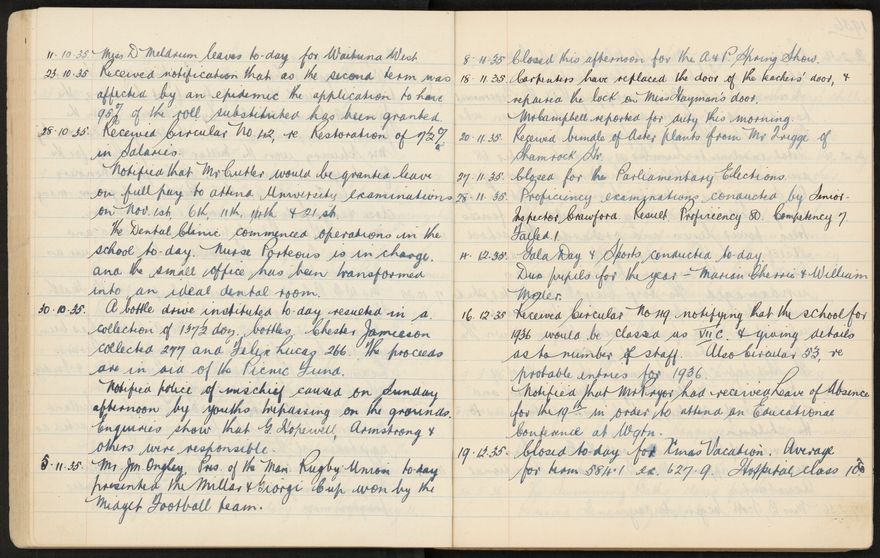 11-10-35 Miss D Meldrum leaves to-day for Waituna West
23.10.35 Received notification that as the second term was
affected by an epidemic the application to have
95% of the roll substituted has been granted.
28-10-35. Received Circular No. 42, re Restoration of 7½%
in Salaries.
Notified that Mr Cutler would be granted leave
on full pay to attend University examinations
on Nov. 1st, 6th, 11th, 14th & 21st.
The Dental Clinic commenced operations in the
school to-day. Nurse Porteous is in charge.
and the small office has been transformed
into an ideal dental room.
30.10.35. A bottle drive instituted to-day resulted in a
collection of 137½ doz. bottles. Chester Jamieson
collected 277 and Felix Lucas 266. The proceeds
are in aid of the Picnic Fund.
Notified police of mischief caused on Sunday
afternoon by youths trespassing on the grounds.
Enquiries show that G. Hopewell, Armstrong &
others were responsible.
5.11.35. Mr Jm Ongley, Pres. of the Man. Rugby Union to-day
presented the Millar & Giorgi Cup won by the
Midget Football team.
1936
8.11.35 Closed this afternoon for the A & P. Spring Show.
18.11.35. Carpenters have replaced the door of the teachers' door, &
repaired the lock on Miss Hayman's door.
Mr Campbell reported for duty this morning.
20.11.35. Received bundle of Aster plants from Mr Frigge of
Shamrock St.
27.11.35. Closed for the Parliamentary Elections.
28.11.35. Proficiency examinations conducted by Senior-
Inspector Crawford. Result Proficiency 80. Competency 7
Failed 1.
14.12.35. Gala Day & Sports conducted to-day.
Dux pupils for the year - Marian Cherrie & William
16.12.35 Received Circular No 119 notifying that the school for
1936 would be classed as VII C. & giving details
as to number of staff. Also Circular 53 re
probable entries for 1936.
Notified that Mr Pryor had received Leave of Absence
for the 19th in order to attend an Educational
Conference at Wgtn.
19.12.35. Closed to-day for Xmas Vacation. Average
for term 584.1 ex. 627.9. Hospital class